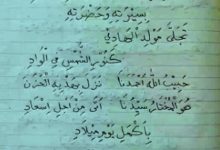 بسيرته وحضرته
تجلى مولد الهادي
كنور الشمس في الواد
حبيب الله أحمدنا نزل بمدية الحزن
هو المختار سيدنا أتى من أجل إسعاد
بأكمل يوم ميلاد